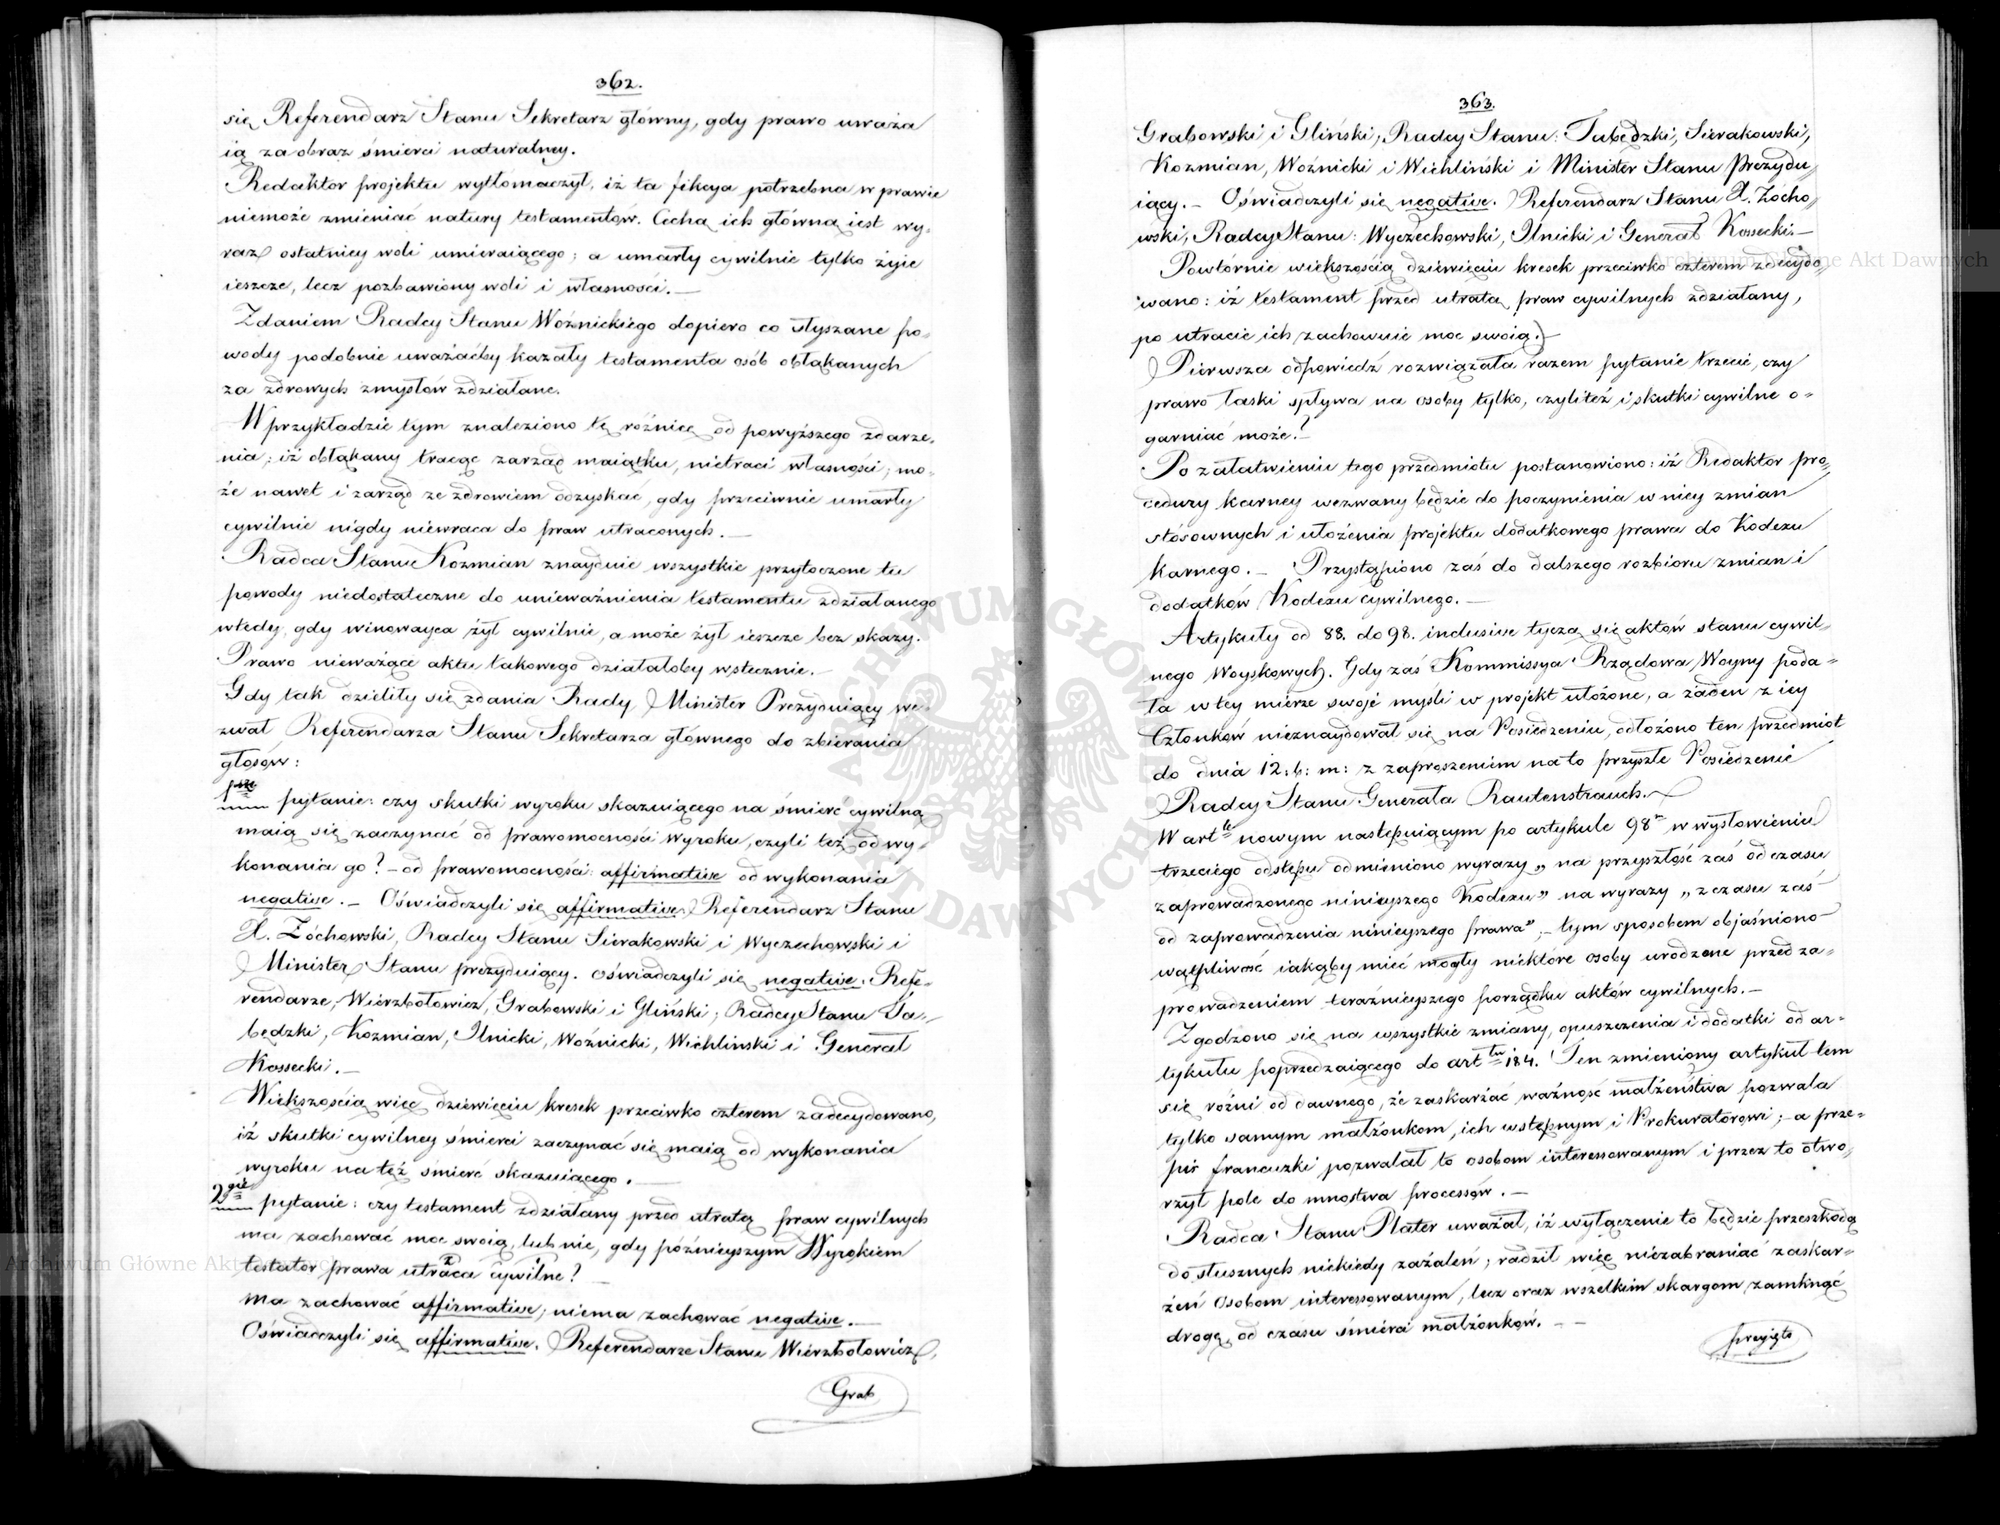 362.
się Referendarz Stanu Sekretarz główny, gdy prawo uważa
ią za obraz śmierci naturalney.
Redaktor projektu wytłomaczył, iż ta fikcya potrzebna w prawie
niemoże zmieniać natury testamentów. Cecha ich główna iest wy-
raz ostatniey woli umieraiącego; a umarły cywilnie tylko żyie
ieszcze, lecz pozbawiony woli i własności. —
Zdaniem Radcy Stanu Woźnickiego dopiero co słyszane po-
wody podobnie uważaćby kazały testamenta osób obłąkanych
za zdrowych zmysłów zdziałane.
W przykładzie tym znaleziono tę różnicę od powyższego zdarze-
nia; iż obłąkany tracąc zarząd maiątku, nietraci własności; mo-
że nawet i zarząd ze zdrowiem odzyskać, gdy przeciwnie umarły
cywilnie nigdy niewraca do praw utraconych. —
Radca Stanu Kozmian znayduie wszystkie przytoczone tu
powody niedostateczne do unieważnienia testamentu zdziałanego
wtedy, gdy winowayca żył cywilnie, a może żył ieszcze bez skazy.
Prawo nieważące aktu takowego działałoby wstecznie. —
Gdy tak dzieliły się zdania Rady, Minister Prezyduiący we-
zwał Referendarza Stanu Sekretarza głównego do zbierania
głosów:
1sze pytanie: czy skutki wyroku skazuiącego na śmierć cywilną
maią się zaczynać od prawomocności wyroku, czyli też od wy-
konania go? — od prawomocności: affirmative od wykonania
negative. — Oświadczyli się affirmative: Referendarz Stanu
X. Żóchowski, Radcy Stanu Sierakowski i Wyczechowski i
Minister Stanu prezyduiący. oświadczyli się negative. Refe-
rendarze, Wierzbołowicz, Grabowski i Gliński; Radcy Stanu Tu-
będzki, Kozmian, Ilnicki, Woźnicki, Wichliński i Generał
Kossecki. —
Większością więc dziewięciu kresek przeciwko czterem zadecydowano,
iż skutki cywilney śmierci zaczynać się maią od wykonania
wyroku na też śmierć skazuiącego. —
2gie pytanie: czy testament zdziałany przed utratą praw cywilnych
ma zachować moc swoią, lub nie, gdy późnieyszym Wyrokiem
testator prawa utraca cywilne? —
Ma zachować affirmative; niema zachować negative. —
Oświadczyli się affirmative. Referendarze Stanu Wierzbołowicz,
Grab
363.
Grabowski i Gliński; Radcy Stanu: Tubędzki, Sierakowski,
Kozmian, Woźnicki i Wichliński i Minister Stanu Prezydu-
iący. — Oświadczyli się negative. Referendarz Stanu X. Żócho-
wski, Radcy Stanu: Wyczechowski, Ilnicki i Generał Kossecki. —
Powtórnie większością dziewięciu kresek przeciwko czterem zdecydo-
wano: iż testament przed utratą praw cywilnych zdziałany,
po utracie ich zachowuie moc swoią. —
Pierwsza odpowiedź rozwiązała razem pytanie trzecie, czy
prawo łaski spływa na osoby tylko, czyliteż i skutki cywilne o-
garniać może? —
Po załatwieniu tego przedmiotu postanowiono: iż Redaktor pro-
cedury karney wezwany będzie do poczynienia w niey zmian
stósownych i ułożenia projektu dodatkowego prawa do Kodexu
karnego. — Przystąpiono zaś do dalszego rozbioru zmian i
dodatków Kodexu cywilnego. —
Artykuły od 88. do 98. inclusive tyczą się aktów stanu cywil-
nego Woyskowych. Gdy zaś Kommissya Rządowa Woyny poda-
ła w tey mierze swoje myśli w projekt ułożone, a żaden z iey
Członków nieznaydował się na Posiedzeniu, odłożono ten przedmiot
do dnia 12. b: m: z zaproszeniem na to przyszłe Posiedzenie
Radcy Stanu Generała Rautenstrauch. —
W artle nowym następuiącym po artykule 98m w wysłowieniu
trzeciego odstępu odmieniono wyrazy „na przyszłość zaś od czasu
zaprowadzonego ninieyszego Kodexu” na wyrazy „z czasu zaś
od zaprowadzenia ninieyszego prawa”; — tym sposobem objaśniono
wątpliwość iakąby mieć mogły niektóre osoby urodzone przed za-
prowadzeniem teraźnieyszego porządku aktów cywilnych. —
Zgodzono się na wszystkie zmiany, opuszczenia i dodatki od ar-
tykułu poprzedzaiącego do arttu 184. Ten zmieniony artykuł tem
się różni od dawnego, że zaskarżać ważność małżeństwa pozwala
tylko samym małżonkom, ich wstępnym i Prokuratorowi; — a prze-
pis francuzki pozwalał to osobom interessowanym i przez to otwo-
rzył pole do mnostwa processów. —
Radca Stanu Plater uważał, iż wyłączenie to będzie przeszkodą
do słusznych niekiedy zażaleń; radził więc niezabraniać zaskar-
żeń Osobom interessowanym, lecz oraz wszelkim skargom zamknąć
drogę od czasu śmierci małżonków. — —
przyięto
Archiwum Główne Akt Dawnych
Archiwum Główne Akt Dawnych
ARCHIWUM GŁÓWNE AKT DAWNYCH